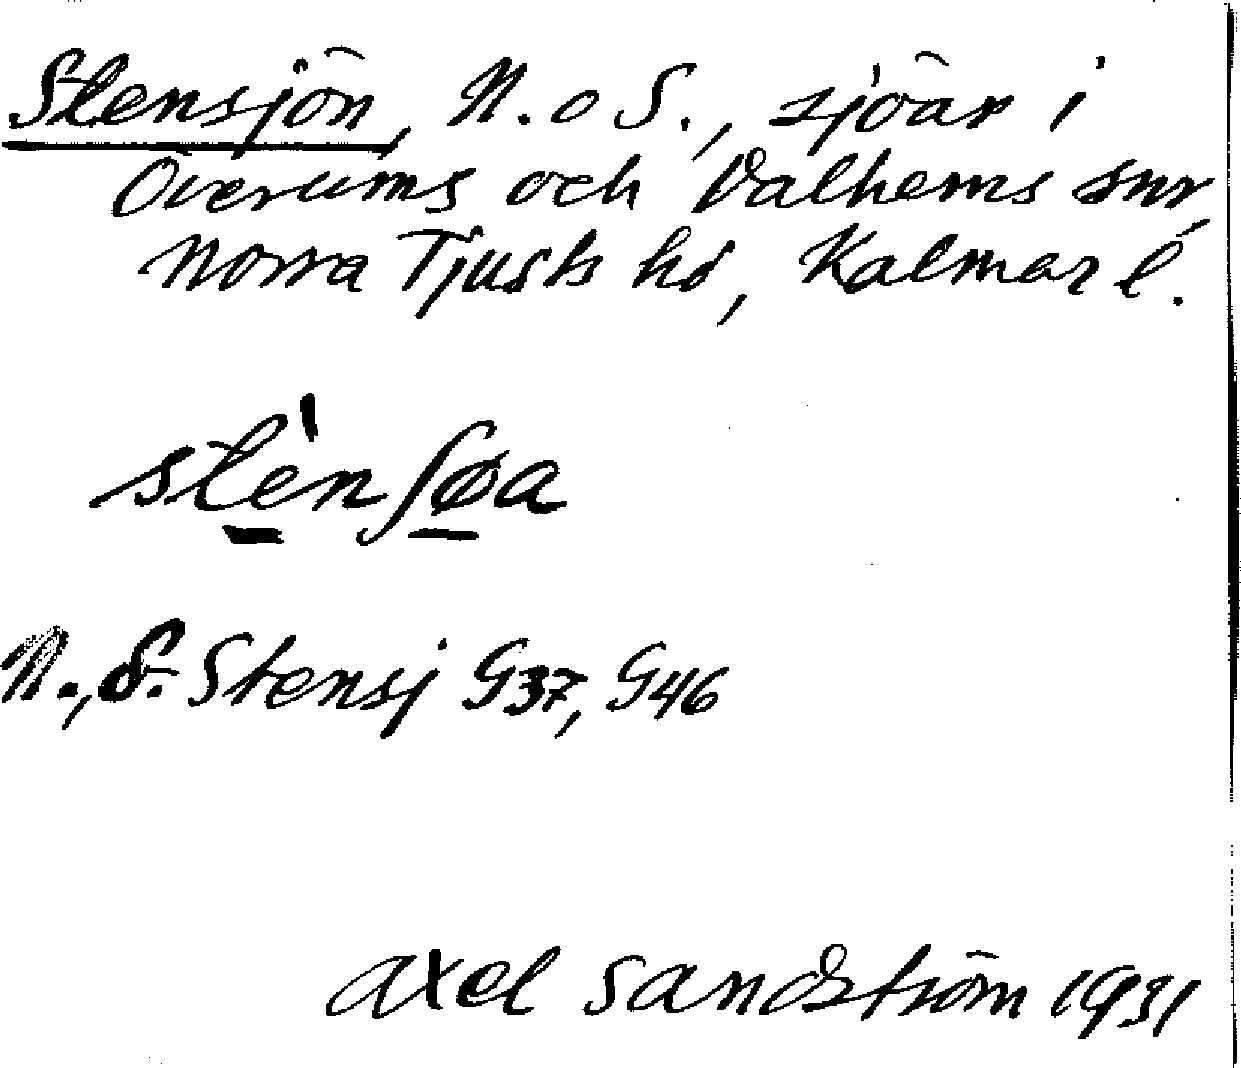 Stensjön, N. o S., sjöar i
Överums och Dalhems snr,
Norra Tjusts hd, Kalmar l.
stènʃøa
N., S. Stensj G37, G46
Axel Sandström 1931